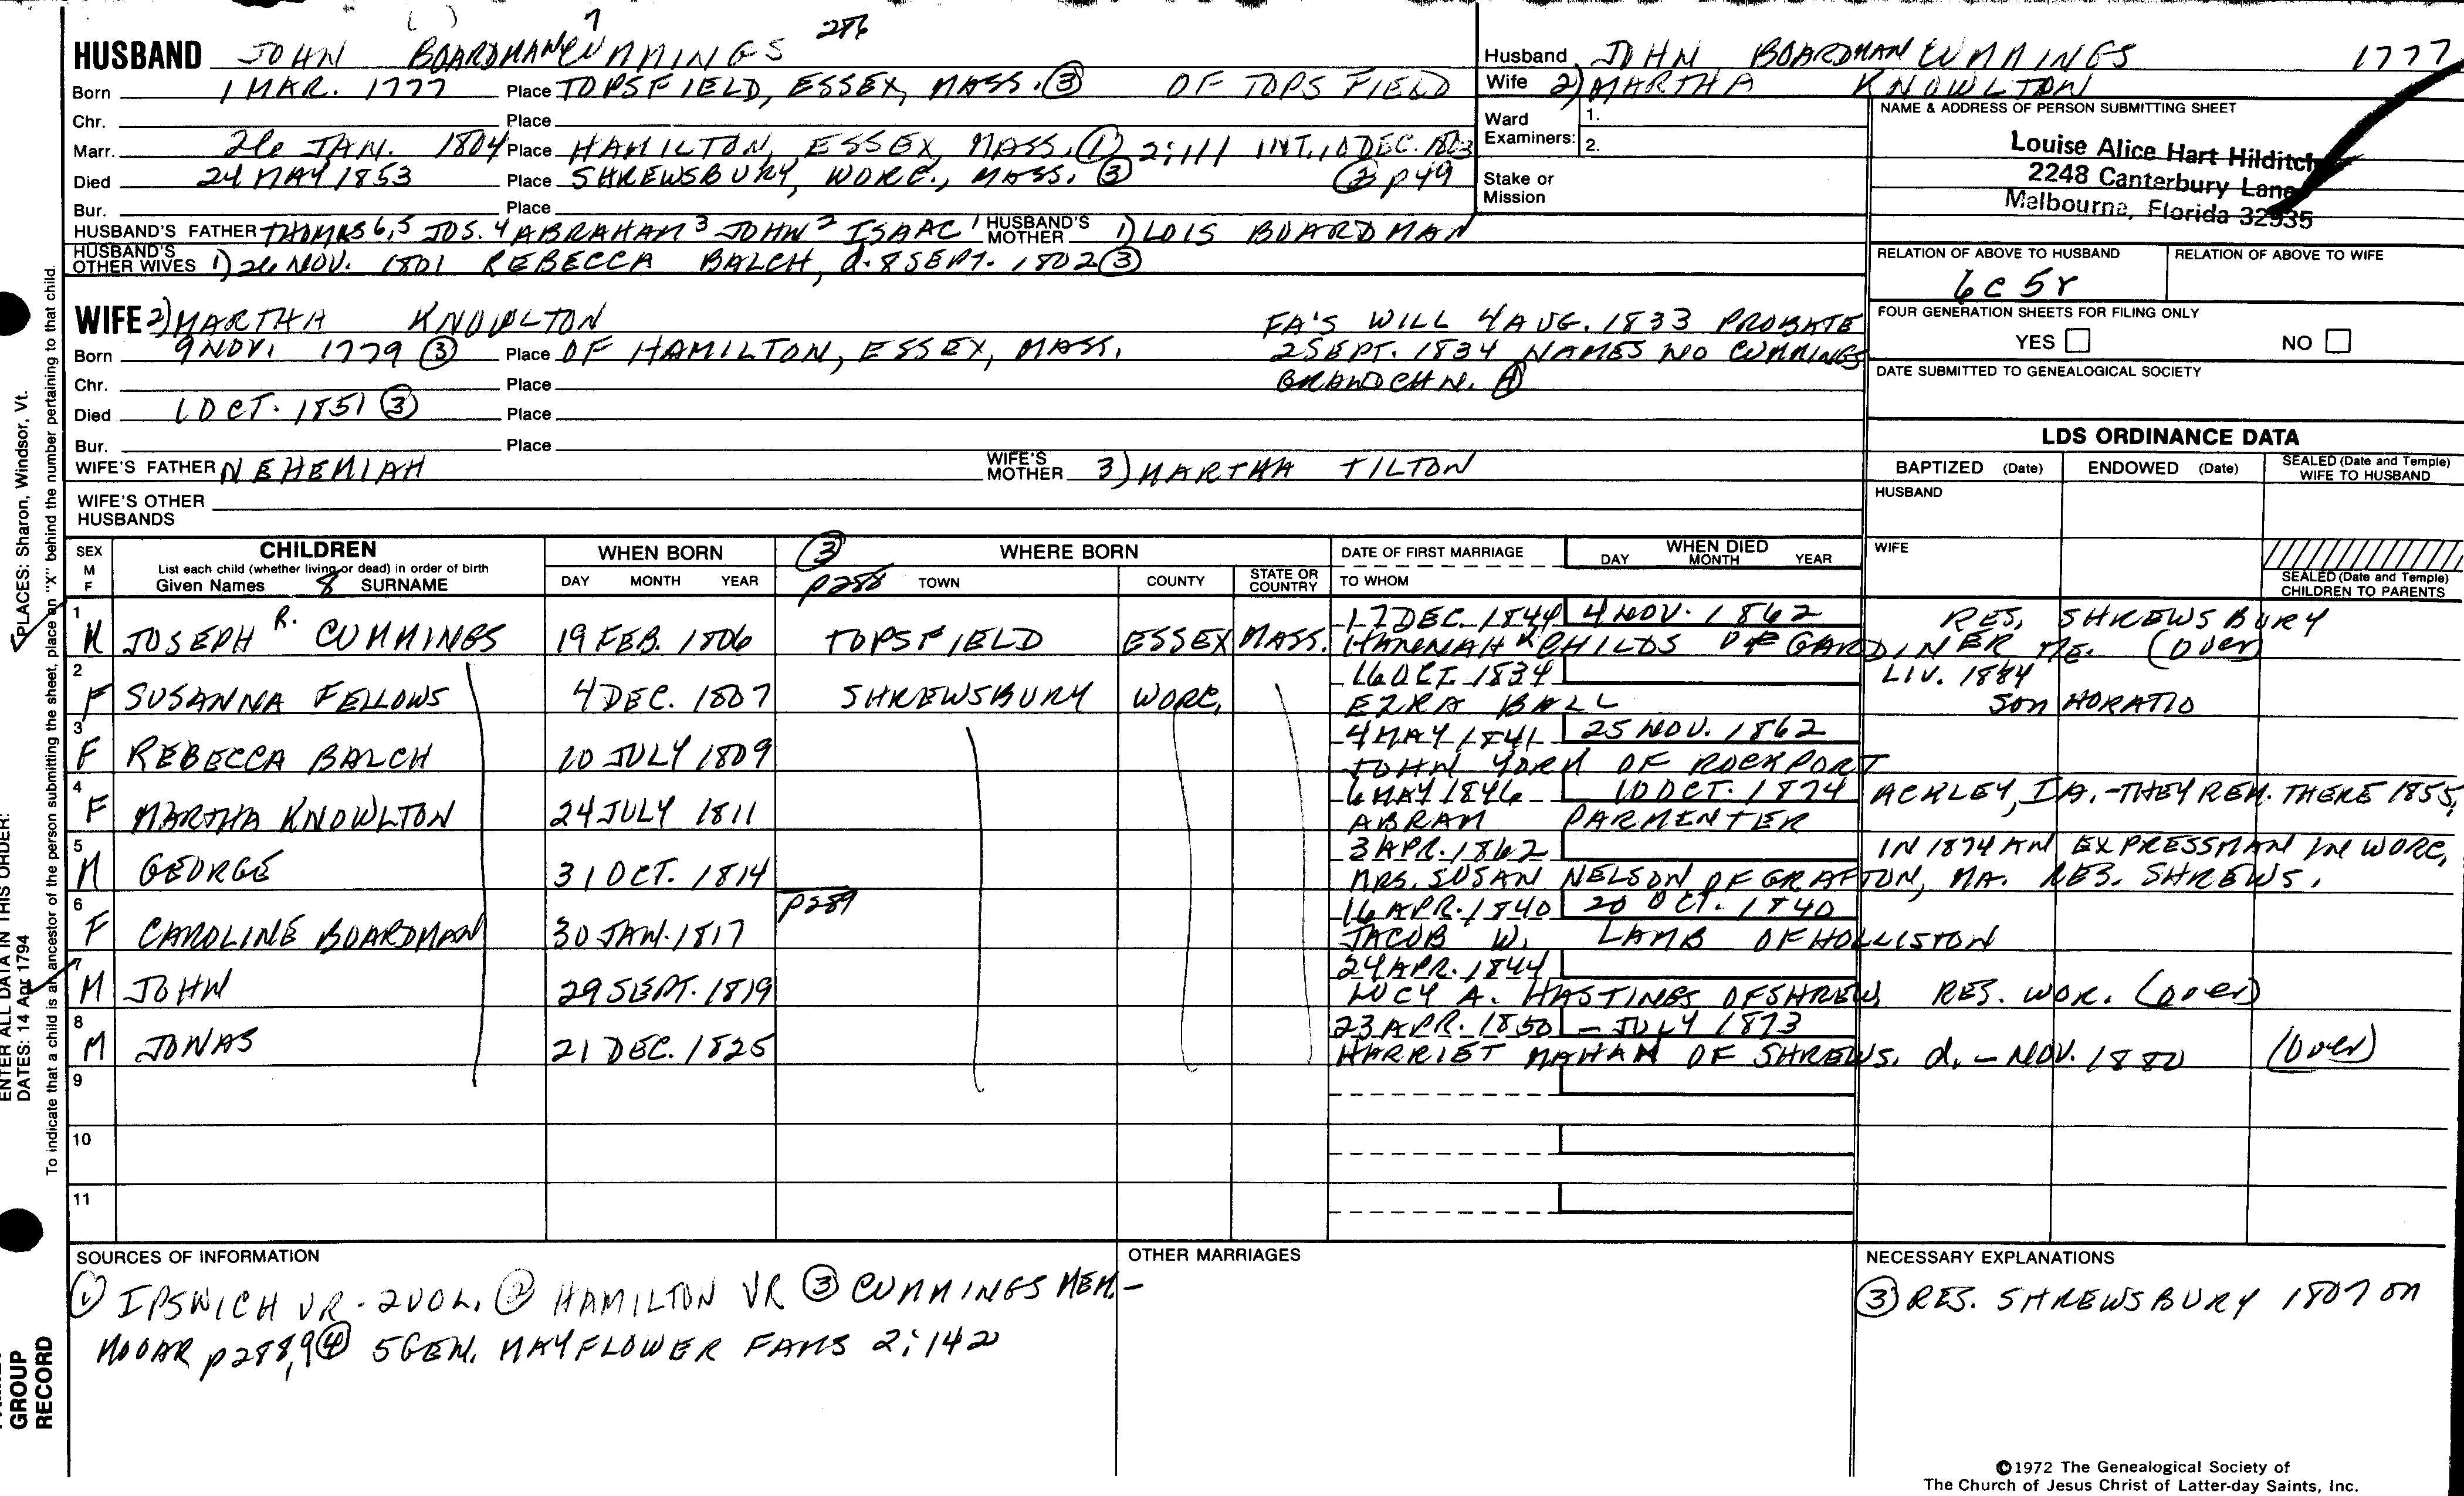 7
286
HUSBAND JOHN BOARDMAN CUMMINGS
Born 1 MAR. 1777 Place TOPSFIELD, ESSEX, MASS. ③ OF TOPSFIELD
Chr. Place
Marr. 26 JAN. 1804 Place HAMILTON, ESSEX, MASS. ① 2:111 INT. 10 DEC. 1803
Died 24 MAY 1853 Place SHREWSBURY, WORC., MASS. ③ ② p49
Bur. Place
HUSBAND'S FATHER THOMAS 6,5 JOS. 4 ABRAHAM 3 JOHN 2 ISAAC 1 HUSBAND'S MOTHER 1) LOIS BOARDMAN
HUSBAND'S OTHER WIVES 1) 26 NOV. 1801 REBECCA BALCH, d. 8 SEPT. 1802 ③
Husband JOHN BOARDMAN CUMMINGS 1777
Wife 2) MARTHA KNOWLTON
Ward Examiners: 1.
2.
Stake or Mission
NAME & ADDRESS OF PERSON SUBMITTING SHEET
Louise Alice Hart Hilditch
2248 Canterbury Lane
Melbourne, Florida 32935
RELATION OF ABOVE TO HUSBAND RELATION OF ABOVE TO WIFE
6C 5r
FOUR GENERATION SHEETS FOR FILING ONLY
YES NO
DATE SUBMITTED TO GENEALOGICAL SOCIETY
WIFE 2) MARTHA KNOWLTON FA'S WILL 4 AUG. 1833 PROBATE
Born 9 NOV. 1779 ③ Place OF HAMILTON, ESSEX, MASS. 2 SEPT. 1834 NAMES NO CUMMINGS
Chr. Place GRANDCHN. ④
Died 1 OCT. 1851 ③ Place
Bur. Place
WIFE'S FATHER NEHEMIAH WIFE'S MOTHER 3) MARTHA TILTON
WIFE'S OTHER HUSBANDS
LDS ORDINANCE DATA
BAPTIZED (Date) ENDOWED (Date) SEALED (Date and Temple) WIFE TO HUSBAND
HUSBAND
WIFE
SEALED (Date and Temple) CHILDREN TO PARENTS
SEX M F CHILDREN WHEN BORN ③ WHERE BORN DATE OF FIRST MARRIAGE WHEN DIED
List each child (whether living or dead) in order of birth DAY MONTH YEAR
Given Names 8 SURNAME DAY MONTH YEAR p288 TOWN COUNTY STATE OR COUNTRY TO WHOM
1 17 DEC. 1844 4 NOV. 1862 RES. SHREWSBURY
M JOSEPH R. CUMMINGS 19 FEB. 1806 TOPSFIELD ESSEX MASS. HANNAH CHILDS OF GARDINER ME. (over)
2 16 OCT. 1834 LIV. 1884
F SUSANNA FELLOWS 4 DEC. 1807 SHREWSBURY WORC. EZRA BALL SON HORATIO
3 4 MAY 1841 25 NOV. 1862
F REBECCA BALCH 10 JULY 1809 JOHN YORK OF ROCKPORT
4 6 MAY 1846 10 OCT. 1874 ACKLEY, IA. - THEY REM. THERE 1855,
F MARTHA KNOWLTON 24 JULY 1811 ABRAM PARMENTER
5 3 APR. 1862 IN 1874 AN EXPRESSMAN IN WORC,
M GEORGE 31 OCT. 1814 MRS. SUSAN NELSON OF GRAFTON, MA. RES. SHREWS.
6 p289 16 APR. 1840 20 OCT. 1840
F CAROLINE BOARDMAN 30 JAN. 1817 JACOB W. LAMB OF HOLLISTON
7 24 APR. 1844
M JOHN 29 SEPT. 1819 LUCY A. HASTINGS OF SHREW. RES. WOR. (over)
8 23 APR. 1850 - JULY 1873
M JONAS 21 DEC. 1825 HARRIET MAHAN OF SHREWS. d. - NOV. 1880 (over)
9
10
11
SOURCES OF INFORMATION
① IPSWICH VR - 2 VOL. ② HAMILTON VR ③ CUMMINGS MEM. -
MOOAR p288,9 ④ 5 GEN. MAYFLOWER FAMS 2:142
OTHER MARRIAGES
NECESSARY EXPLANATIONS
③ RES. SHREWSBURY 1807 on
©1972 The Genealogical Society of
The Church of Jesus Christ of Latter-day Saints, Inc.
PLACES: Sharon, Windsor, Vt.
ENTER ALL DATA IN THIS ORDER:
DATES: 14 Apr 1794
To indicate that a child is an ancestor of the person submitting the sheet, place an "X" behind the number pertaining to that child.
GROUP
RECORD